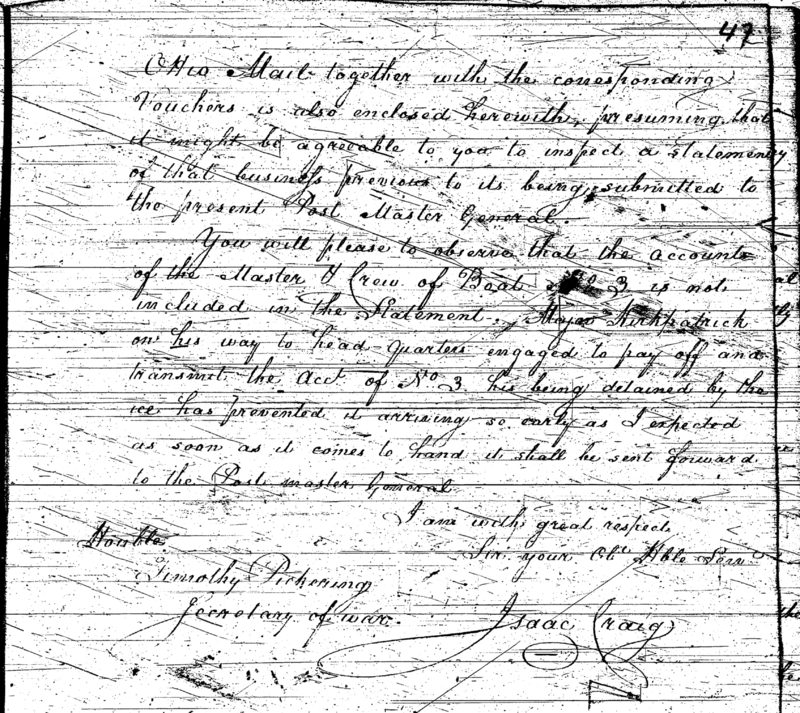 47
Ohio Mail together with the corresponding
Vouchers is also enclosed herewith, presuming that
it might be agreeable to you to inspect a statement
of that business previous to its being submitted to
the present Post Master General.
You will please to observe that the accounts
of the Master & Crew of Boat No 3 is not
included in the Statement. Major Kirkpatrick
on his way to head quarters engaged to pay off and
transmit the acct of No 3 his being detained by the
ice has prevented it arriving so early as I expected
as soon as it comes to hand it shall be sent forward
to the Post master General
I am with great respect
Sir your Obt Hble Serv
Honble
Timothy Pickering
Secretary of war.
Isaac Craig